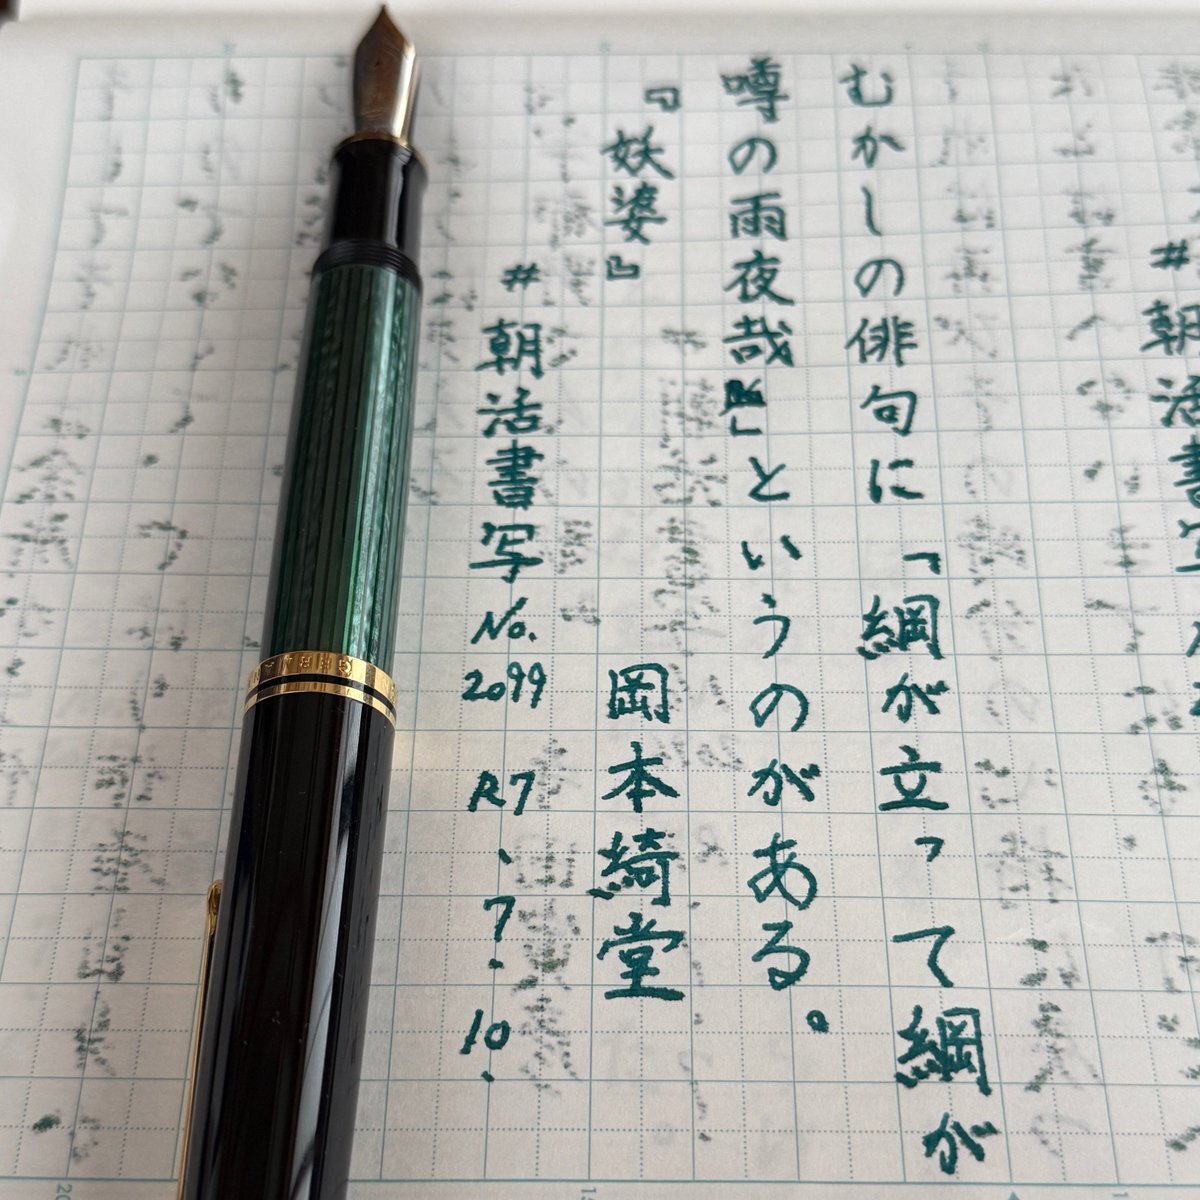 むかしの俳句に「綱が立って綱が
噂の雨夜哉」というのがある。
『妖婆』 岡本綺堂
#朝活書写No.2099 R7、7.10.
#朝活書写